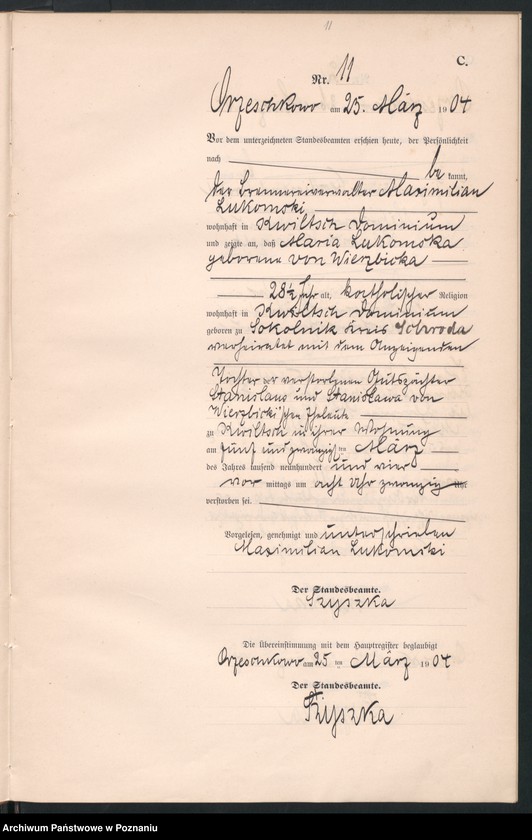 11
C.
Nr. 11
Orzeschkowo am 25. März 1904
Vor dem unterzeichneten Standesbeamten erschien heute, der Persönlichkeit
nach be kannt,
der Brennereiverwalter Maximilian
Lukomski
wohnhaft in Kwiltsch Dominium
und zeigte an, daß Maria Lukomska
geborene von Wierzbicka
28½ Jahr alt, katholischer Religion
wohnhaft in Kwiltsch Dominium
geboren zu Sokolnik Kreis Schroda
verheiratet mit dem Anzeigenden
Tochter der verstorbenen Gutspächter
Stanislaus und Stanislawa von
Wierzbicki'schen Eheleute
zu Kwiltsch in ihrer Wohnung
am fünf und zwanzigsten März
des Jahres tausend neunhundert und vier
vor mittags um acht Uhr zwanzig Uhr
verstorben sei.
Vorgelesen, genehmigt und unterschrieben
Maximilian Lukomski
Der Standesbeamte.
Szyszka
Die Übereinstimmung mit dem Hauptregister beglaubigt
Orzeschkowo am 25 ten März 1904
Der Standesbeamte.
Szyszka
Archiwum Państwowe w Poznaniu